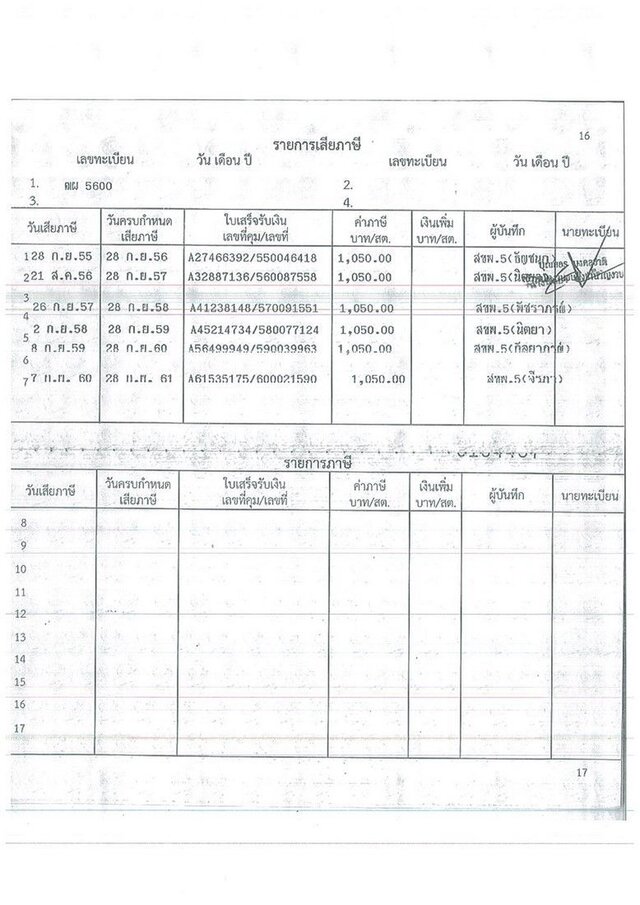 16
รายการเสียภาษี
เลขทะเบียน วัน เดือน ปี เลขทะเบียน วัน เดือน ปี
1. ฅผ 5600 2.
3. 4.
วันเสียภาษี วันครบกำหนด เสียภาษี ใบเสร็จรับเงิน เลขที่คุม/เลขที่ ค่าภาษี บาท/สต. เงินเพิ่ม บาท/สต. ผู้บันทึก นายทะเบียน
1 28 ก.ย.55 28 ก.ย.56 A27466392/550046418 1,050.00 สขพ.5
2 21 ส.ค.56 28 ก.ย.57 A32887136/560087558 1,050.00 สขพ.5
3
26 ก.ย.57 28 ก.ย.58 A41238148/570091551 1,050.00 สขพ.5(พัชราภรณ์)
4
2 ก.ย.58 28 ก.ย.59 A45214734/580077124 1,050.00 สขพ.5(นิตยา)
5
8 ก.ย.59 28 ก.ย.60 A56499949/590039963 1,050.00 สขพ.5(กัลยาภรณ์)
6
7 7 ก.ย. 60 28 ก.ย. 61 A61535175/600021590 1,050.00 สขพ.5
รายการภาษี
วันเสียภาษี วันครบกำหนด เสียภาษี ใบเสร็จรับเงิน เลขที่คุม/เลขที่ ค่าภาษี บาท/สต. เงินเพิ่ม บาท/สต. ผู้บันทึก นายทะเบียน
8
9
10
11
12
13
14
15
16
17
17